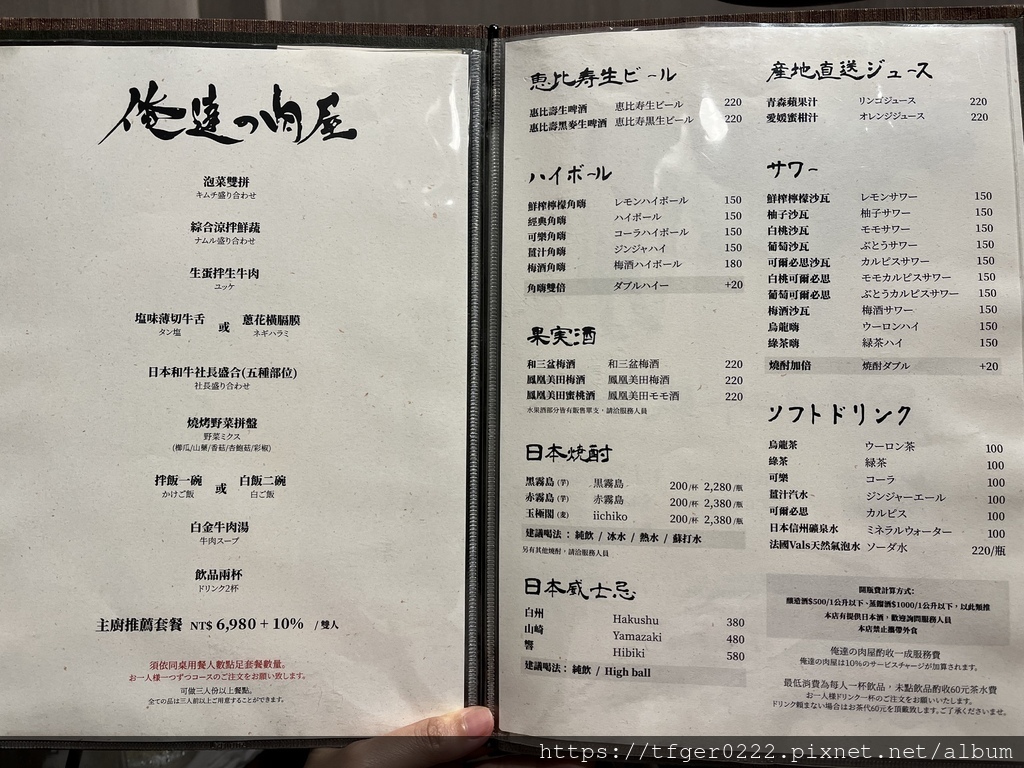 俺達の肉屋
泡菜雙拼
キムチ盛り合わせ
綜合涼拌鮮蔬
ナムル盛り合わせ
生蛋拌生牛肉
ユッケ
塩味薄切牛舌 或 蔥花橫膈膜
タン塩 ネギハラミ
日本和牛社長盛合(五種部位)
社長盛り合わせ
燒烤野菜拼盤
野菜ミクス
(櫛瓜/山藥/香菇/杏鮑菇/彩椒)
拌飯一碗 或 白飯二碗
かけご飯 白ご飯
白金牛肉湯
牛肉スープ
飲品兩杯
ドリンク2杯
主廚推薦套餐 NT$ 6,980 + 10% / 雙人
須依同桌用餐人數點足套餐數量。
お一人様一つずつコースのご注文をお願い致します。
可做三人份以上餐點。
全ての品は三人前以上ご用意することができます。
恵比寿生ビール
惠比壽生啤酒 恵比寿生ビール 220
惠比壽黑麥生啤酒 恵比寿黒生ビール 220
ハイボール
鮮榨檸檬角嗨 レモンハイボール 150
經典角嗨 ハイボール 150
可樂角嗨 コーラハイボール 150
薑汁角嗨 ジンジャハイ 150
梅酒角嗨 梅酒ハイボール 180
角嗨雙倍 ダブルハイー +20
果実酒
和三盆梅酒 和三盆梅酒 220
鳳凰美田梅酒 鳳凰美田梅酒 220
鳳凰美田蜜桃酒 鳳凰美田モモ酒 220
水果酒部分皆有販售單支，請洽服務人員
日本焼酎
黑霧島 (芋) 黒霧島 200/杯 2,280/瓶
赤霧島 (芋) 赤霧島 200/杯 2,380/瓶
玉極閣 (麦) iichiko 200/杯 2,380/瓶
建議喝法： 純飲 / 冰水 / 熱水 / 蘇打水
另有其他燒酎，請洽服務人員
日本威士忌
白州 Hakushu 380
山崎 Yamazaki 480
響 Hibiki 580
建議喝法： 純飲 / High ball
産地直送ジュース
青森蘋果汁 リンゴジュース 220
愛媛蜜柑汁 オレンジジュース 220
サワー
鮮榨檸檬沙瓦 レモンサワー 150
柚子沙瓦 柚子サワー 150
白桃沙瓦 モモサワー 150
葡萄沙瓦 ぶとうサワー 150
可爾必思沙瓦 カルピスサワー 150
白桃可爾必思 モモカルピスサワー 150
葡萄可爾必思 ぶとうカルピスサワー 150
梅酒沙瓦 梅酒サワー 150
烏龍嗨 ウーロンハイ 150
綠茶嗨 緑茶ハイ 150
燒酎加倍 焼酎ダブル +20
ソフトドリンク
烏龍茶 ウーロン茶 100
綠茶 緑茶 100
可樂 コーラ 100
薑汁汽水 ジンジャーエール 100
可爾必思 カルピス 100
日本信州礦泉水 ミネラルウォーター 100
法國Vals天然氣泡水 ソーダ水 220/瓶
開瓶費計算方式：
釀造酒$500/1公升以下、蒸餾酒$1000/1公升以下，以此類推
本店有提供日本酒，歡迎詢問服務人員
本店禁止攜帶外食
俺達の肉屋酌收一成服務費
俺達の肉屋は10%のサービスチャージが加算されます。
最低消費為每人一杯飲品，未點飲品酌收60元茶水費
お一人様ドリンク一杯のご注文をお願いいたします。
ドリンク頼まない場合はお茶代60元を頂戴致します。ご了承くださいませ。
https://tfger0222.pixnet.net/album